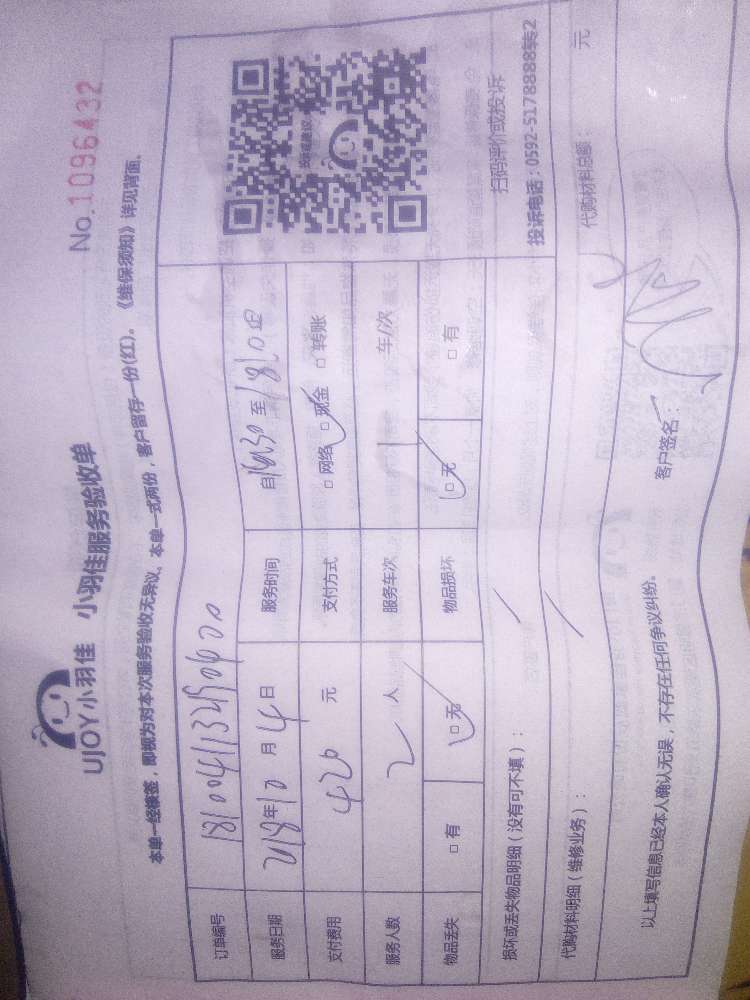 UJOY小羽佳 小羽佳服务验收单
No.1096432
本单一经缘签，即视为对本次服务验收无异议。本单一式两份，客户留存一份(红)。《维保须知》详见背面。
订单编号
服务日期 2018年10月4日 服务时间 自 至
支付费用 420 元 支付方式 □网络 □现金 □转账
服务人数 2 人 服务车次 车/次
物品丢失 □有 □无 物品损坏 □无 □有
扫码评价或投诉
投诉电话：0592-5178888转2
损坏或丢失物品明细（没有可不填）：
代购材料明细（维修业务）： 代购材料总额： 元
以上填写信息已经本人确认无误，不存在任何争议纠纷。 客户签名：